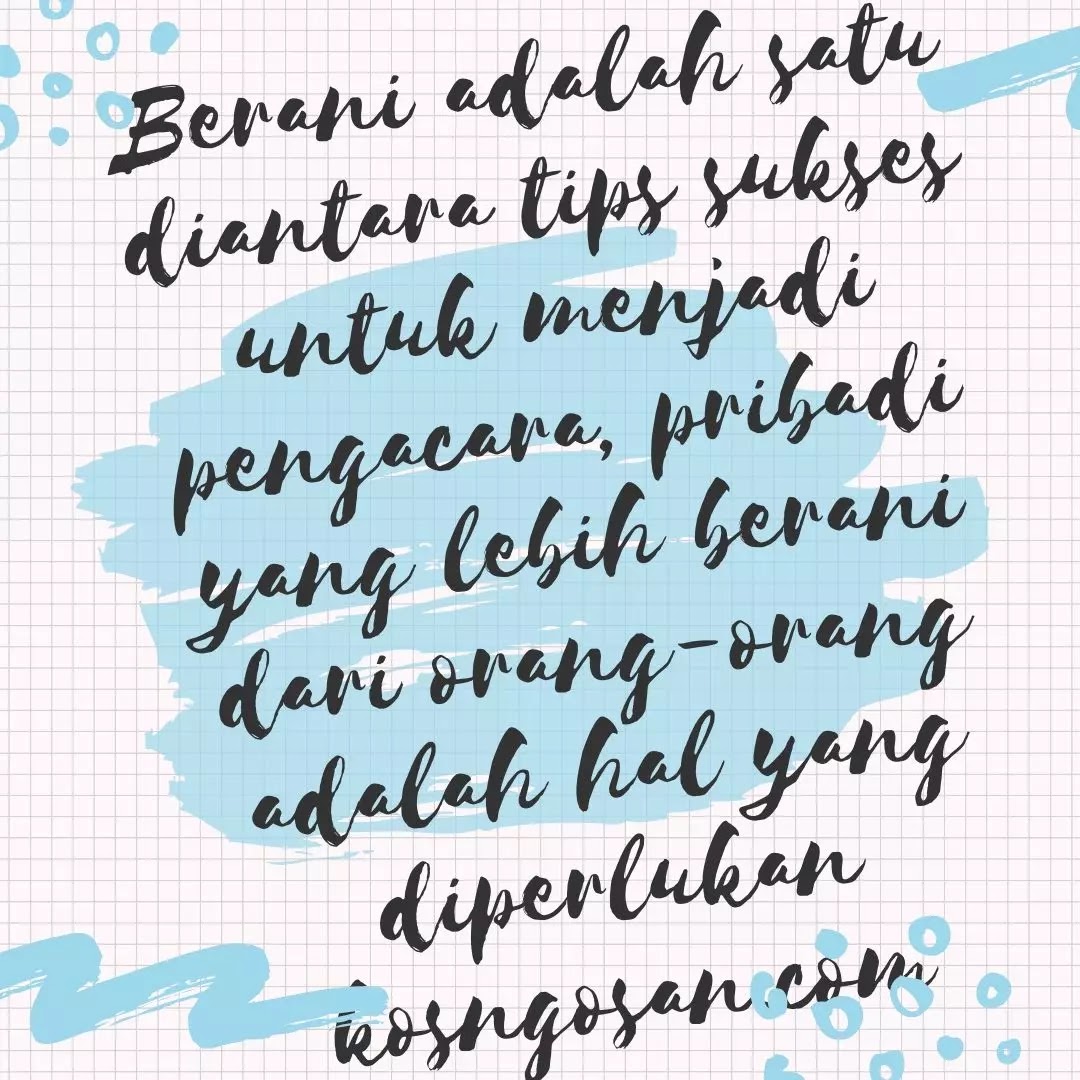 Berani adalah satu
diantara tips sukses
untuk menjadi
pengacara, pribadi
yang lebih berani
dari orang-orang
adalah hal yang
diperlukan
kosngosan.com